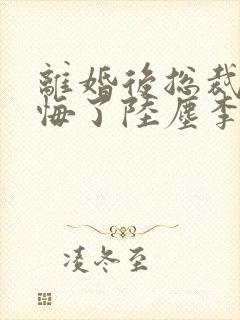 離婚後総裁
悔了陸塵李
凌冬至